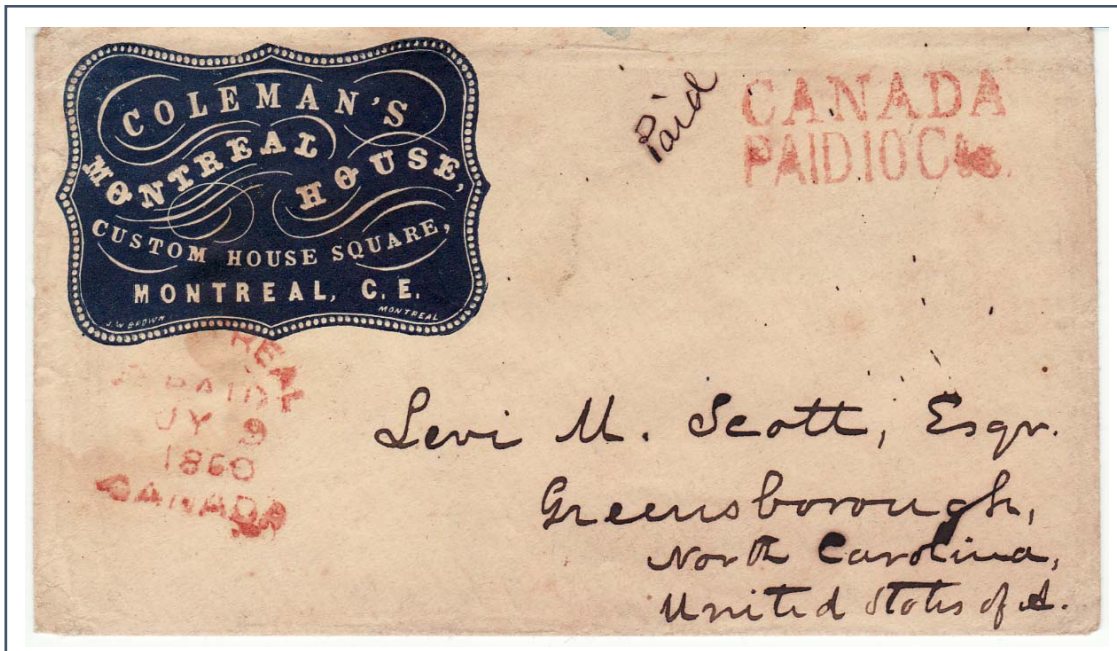 COLEMAN'S
MONTREAL
HOUSE,
CUSTOM HOUSE SQUARE,
MONTREAL, C. E.
J. W. BROWN
MONTREAL
Paid
CANADA
PAID 10 Cts.
PAID
JY 9
1860
CANADA
Levi M. Scott, Esqr.
Greensborough,
North Carolina,
United States of A.